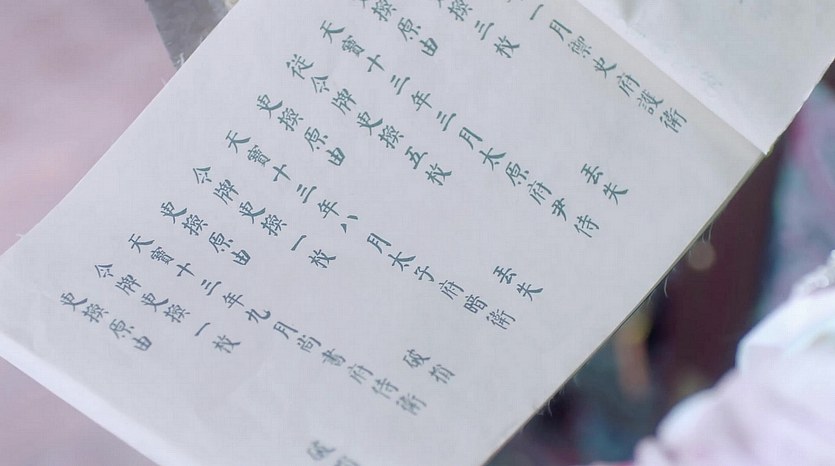 一月御史府護衛
換三枚
換原由 丟失
天寶十三年三月太原府尹侍
從令牌更換五枚
更換原由 丟失
天寶十三年八月太子府暗衛
令牌更換一枚
更換原由 破損
天寶十三年九月尚書府侍衛
令牌更換一枚
更換原由 破